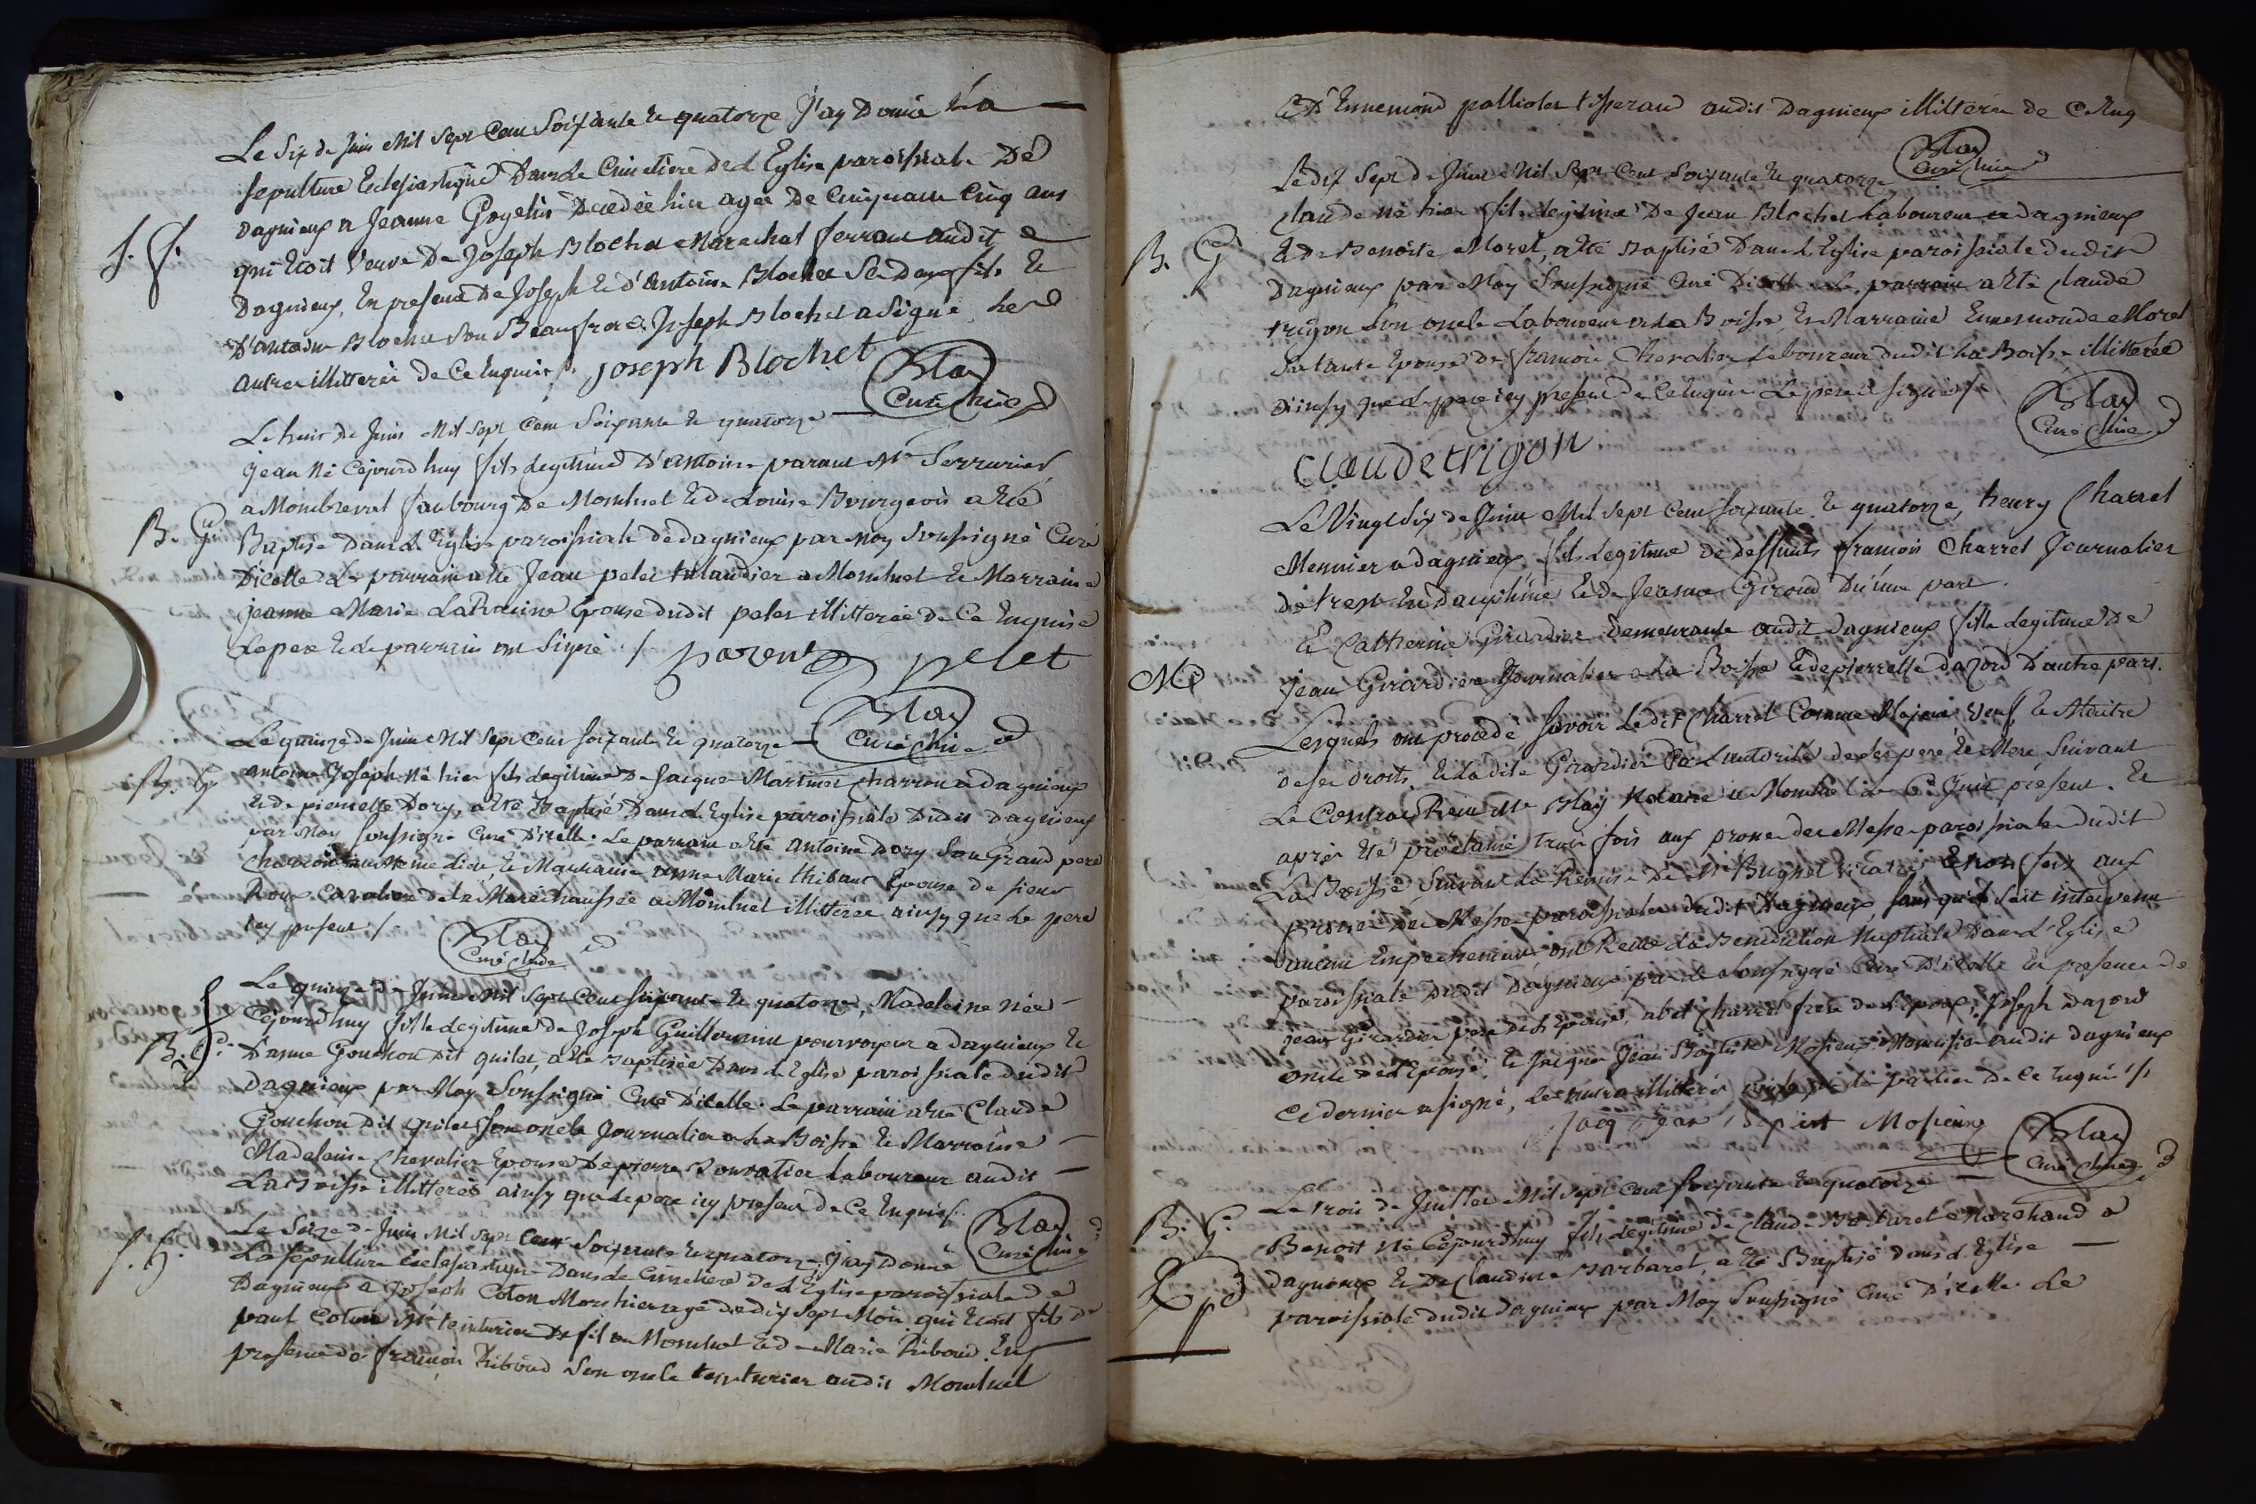 Le Six de Juin Mil Sept Cent Soixante et quatorze J'ay Donné La
sepulture Eclesiastique Dans Le Cimetiere De L'Eglise paroissiale De
S. f. Dagnieux a Jeanne Goyelin Decedée hier agée De Cinquante Cinq ans
qui Etoit Veuve De Joseph Blochet Marechal ferrant audit
Dagnieux, En presence De Joseph Et d'Antoine Blochet Ses Deux fils Et
D'antoine Blochet Son Beaufrere. Joseph Blochet a Signé, Les
autres illitterés de Ce Enquis /. Joseph Blochet
Blay
Curé
Le huit de Juin Mil Sept Cent Soixante Et quatorze
Jean Né Cejourdhuy fils legitime D'Antoine parant Me Serrurier
a Montbrevel faubourg De Montluel Et de Louise Bourgeois a Eté
B. G. Baptisé Dans L'Eglise paroissiale de dagnieux par Moy Soussigné Curé
Dicelle. Le parrain a Eté Jean pelet taillandier a Montluel Et Marraine
Jeanne Marie LaRacine Epouse dudit pelet illitterée de Ce Enquise
Le pere Et Le parrain ont Signé / parent pelet
Blay
Curé
Le quinze de Juin Mil Sept Cent Soixante Et quatorze
B. G. antoine Joseph Né hier fils legitime De Jacque Martinet Charron a Dagnieux
Et de pierrette Dory, a Eté Baptisé Dans L'Eglise paroissiale Dudit Dagnieux
par Moy Soussigné Curé D'icelle. Le parrain a Eté antoine Dory Son Grand pere
Charron au Meme Lieu, Et Marraine anne Marie thibaut Epouse de sieur
Roux Cavalier de la Maréchaussée a Montluel illitterée ainsy que Le pere
icy present /.
Blay
Curé
Le quinze de Juin Mil Sept Cent Soixante Et quatorze, Madeleine née
Cejourdhuy fille Legitime de Joseph Guillermin pourvoyeur a Dagnieux Et
B. f. D'anne Gouchon Dit quilet, a Eté Baptisée Dans L'Eglise paroissiale dudit
Dagnieux par Moy Soussigné Curé D'icelle. Le parrain a Eté Claude
Gouchon dit quilet Son oncle Journalier a La Boisse Et Marraine
Madeleine Chevalier Epouse De pierre Bouvatier Laboureur audit
La Boisse illitterés ainsy que Le pere icy present de Ce Enquis /.
Blay
Curé
Le Seize de Juin Mil Sept Cent Soixante Et quatorze, J'ay Donné
S. G. La Sepulture Eclesiastique Dans Le Cimetiere de L'Eglise paroissiale de
Dagnieux a Joseph Coton Mort hier agé de dix Sept Mois qui Etoit fils de
paul Coton Me teinturier De fil a Montluel Et de Marie Riboud. En
presence de françois Riboud Son oncle teinturier audit Montluel
Et D'Ennemond palliolet tisseran audit Dagnieux illitterés de Ce Enq
Blay
Curé
Le dix Sept de Juin Mil Sept Cent Soixante Et quatorze
Claude né hier fils legitime De Jean Blochet Laboureur a dagnieux
B. G. Et de Benoite Moret, a Eté Baptisé Dans L'Eglise paroissiale dudit
Dagnieux par Moy Soussigné Curé Dicelle Le parrain a Eté Claude
trigon Son oncle Laboureur a La Boisse Et Marraine Ennemonde Moret
Sa tante Epouse de françois Chevalier Laboureur dudit La Boisse illitterée
Ainsy que Le pere icy present de Ce Enquis Le a signé /.
Blay
Curé
Claude trigon
Le Vingt Six de Juin Mil Sept Cent Soixante Et quatorze, henry Charret
Meunier a dagnieux fils Legitime de deffunts françois Charret Journalier
de trest En Dauphiné Et de Jeanne Giroud D'une part.
Et Catherine Girardier Demeurante audit Dagnieux fille Legitime De
M. Jean Girardier Journalier a La Boisse Et de pierrette dazord D'autre part.
Lesquels ont procedé, Savoir Ledit Charret Comme Majeur Veuf Et Maitre
de ses droits, Et Ladite Girardier De L'autorité de ses pere Et Mere Suivant
Le Contrat Reçu Me Blay Notaire a Montluel Le 6 Juin présent. Et
après Eté proclamé trois fois aux prones des Messes paroissiales dudit
La Boisse, Suivant La Remise De Mr Bugnet Vicaire, Et trois fois aux
prones des Messes paroissiales dudit Dagnieux, Sans qu'il Soit intervenu
aucun Empechement ont Reçu La Benediction Nuptiale Dans L'Eglise
paroissiale Dudit Dagnieux par Le Soussigné Curé D'icelle En presence de
Jean Girardier pere de L'Epouse, abel Charret frere de L'Epoux, Joseph dazord
oncle de L'Epouse, Et Jacques Jean Baptiste Mosieux audit dagnieux
Ce dernier a signé, Les autres illitterés ainsy que Les parties de Ce Enquis /.
Jacq Jean Baptist Mosieux
Blay
Curé
Le trois de Juillet Mil Sept Cent Soixante Et quatorze
B. G. Benoit né Cejourdhuy fils Legitime de Claude Barbaret Marchand a
dagnieux Et De Claudine Barbaret, a Eté Baptisé dans L'Eglise
paroissiale dudit dagnieux par Moy Soussigné Curé D'icelle. Le